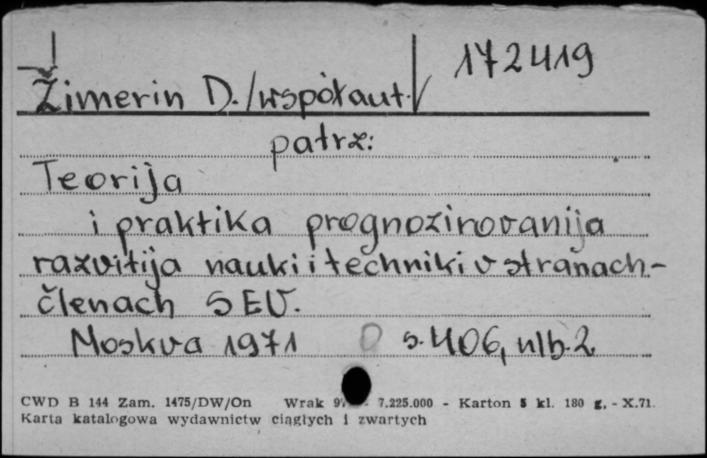 Žimerin D. /współaut./ 172419
patrz:
Teorija
i praktika prognozirovanija
razvitija nauki i techniki v stranach-
členach SEV.
Moskva 1971 s. 406, nlb. 2
CWD B 144 Zam. 1475/DW/On Wrak 7.225.000 - Karton 5 kl. 180 g. - X.71.
Karta katalogowa wydawnictw ciągłych i zwartych